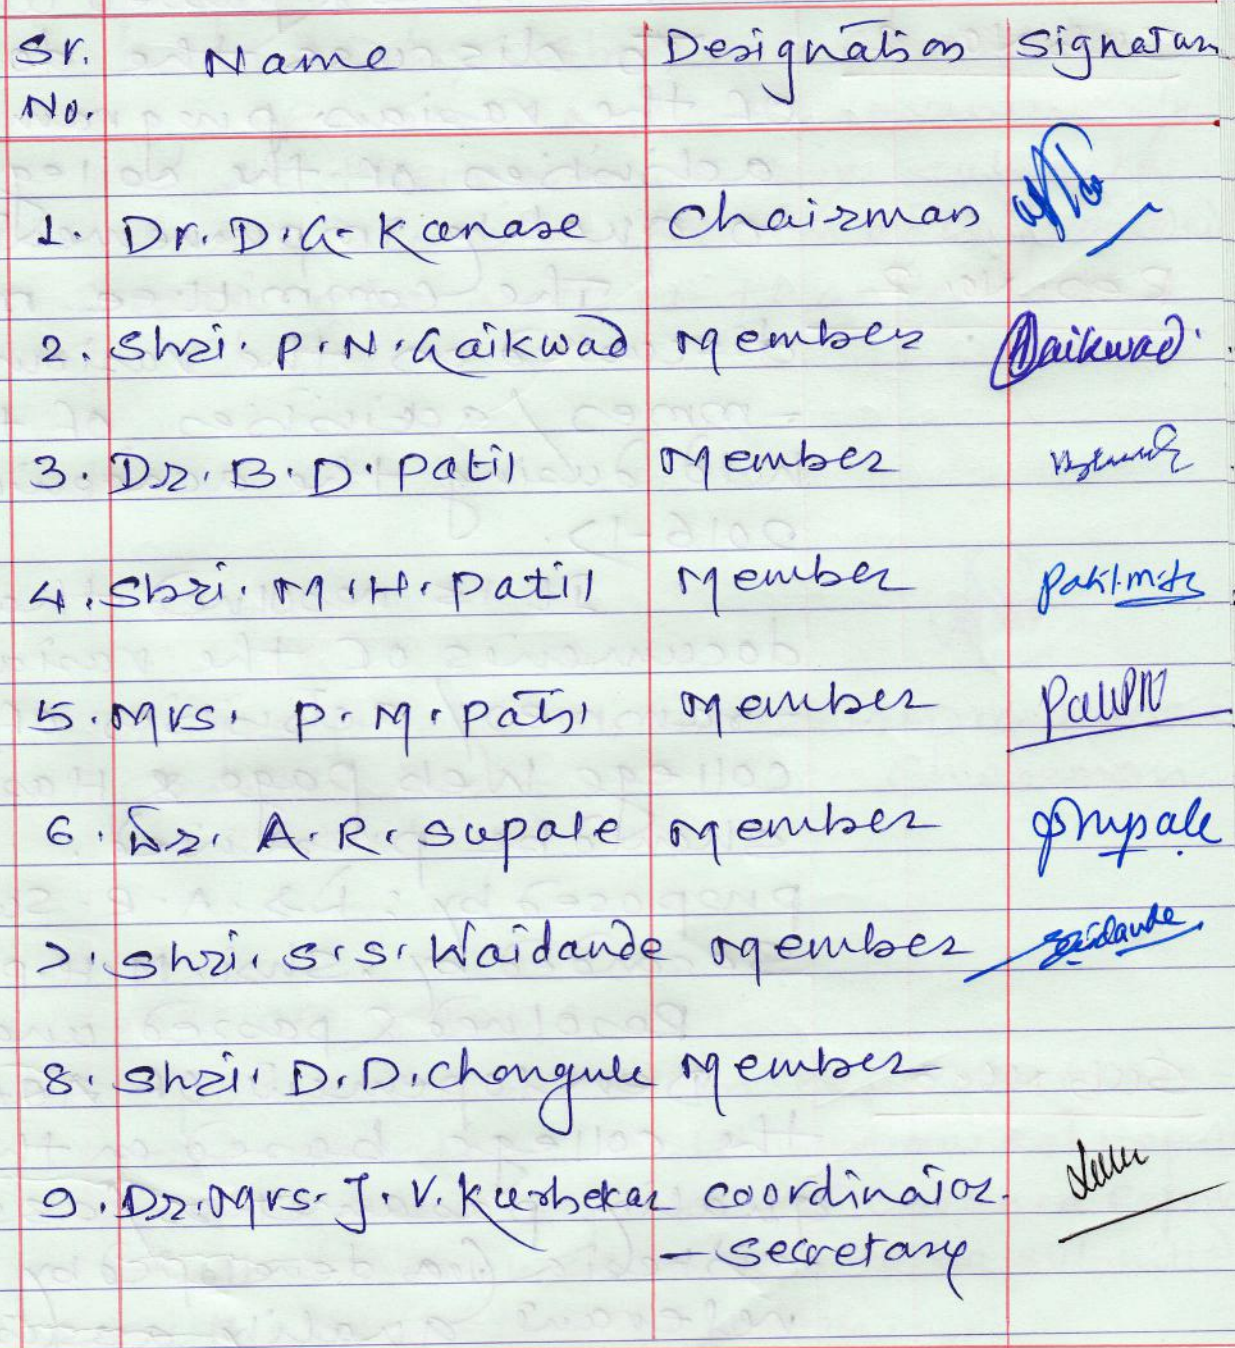 Sr. No. Name Designation Signature
1. Dr. D. G. Kanase Chairman
2. Shri. P. N. Gaikwad Member Gaikwad
3. Dr. B. D. Patil Member
4. Shri. M. H. Patil Member Patil M.H.
5. Mrs. P. M. Patil Member
6. Dr. A. R. Supale Member
7. Shri. S. S. Waidande Member
8. Shri. D. D. Chougule Member
9. Dr. Mrs. J. V. Kurhekar Coordinator
- Secretary